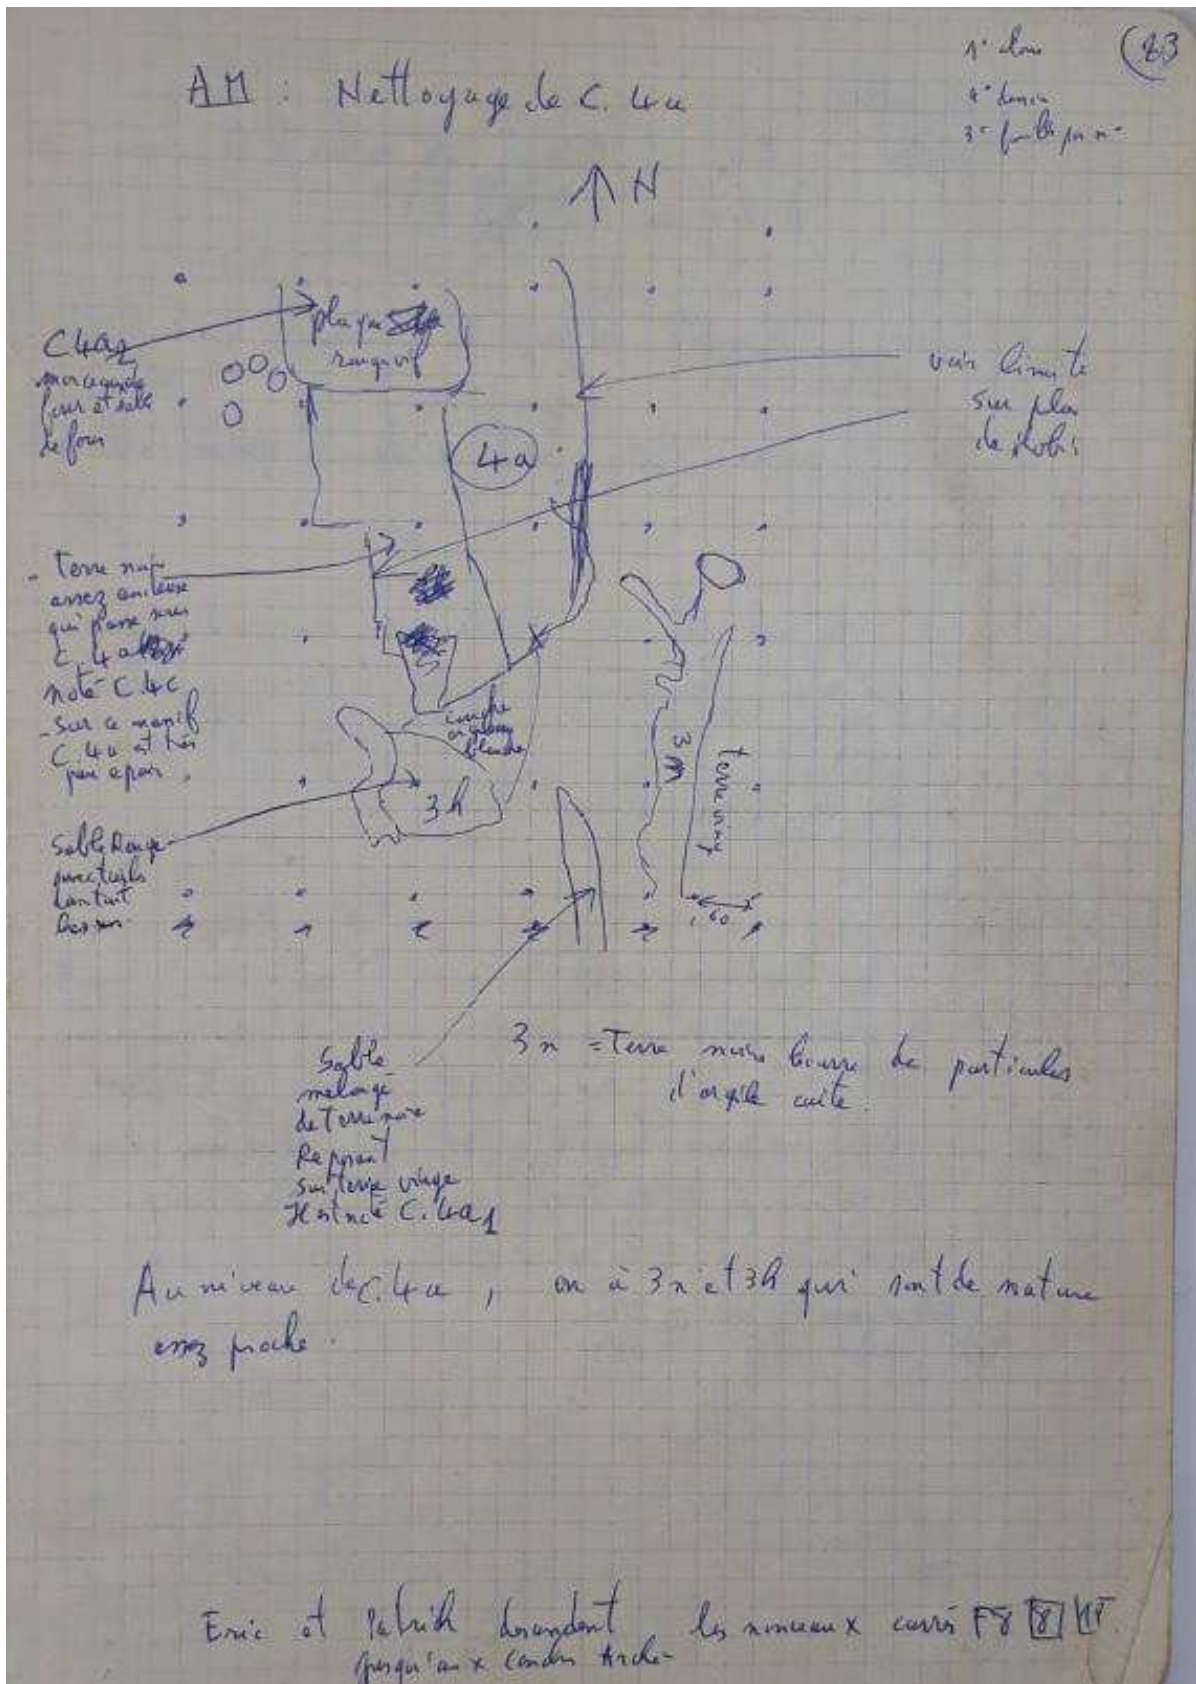 23
AM : Nettoyage de C. 4a
N
plaque
C4a2
morceaux de
four et sole
de four
voir limite
sur plan
de
4a
- terre noire
assez
qui passe sous
C. 4a
noté C.4c
- Sur ce massif
C 4a est très
peu épais.
couche
blanche
3h
3m
terre vierge
60
Sable Rouge
Sable
mélangé
de terre noire
Reposant
sur terre vierge
Il est noté C.4a1
3n = Terre noire bourré de particules
d'argile cuite.
Au niveau de C.4a, on a 3n et 3h qui sont de nature
assez proche.
Eric et Patrick descendent les nouveaux carrés F8
jusqu'aux